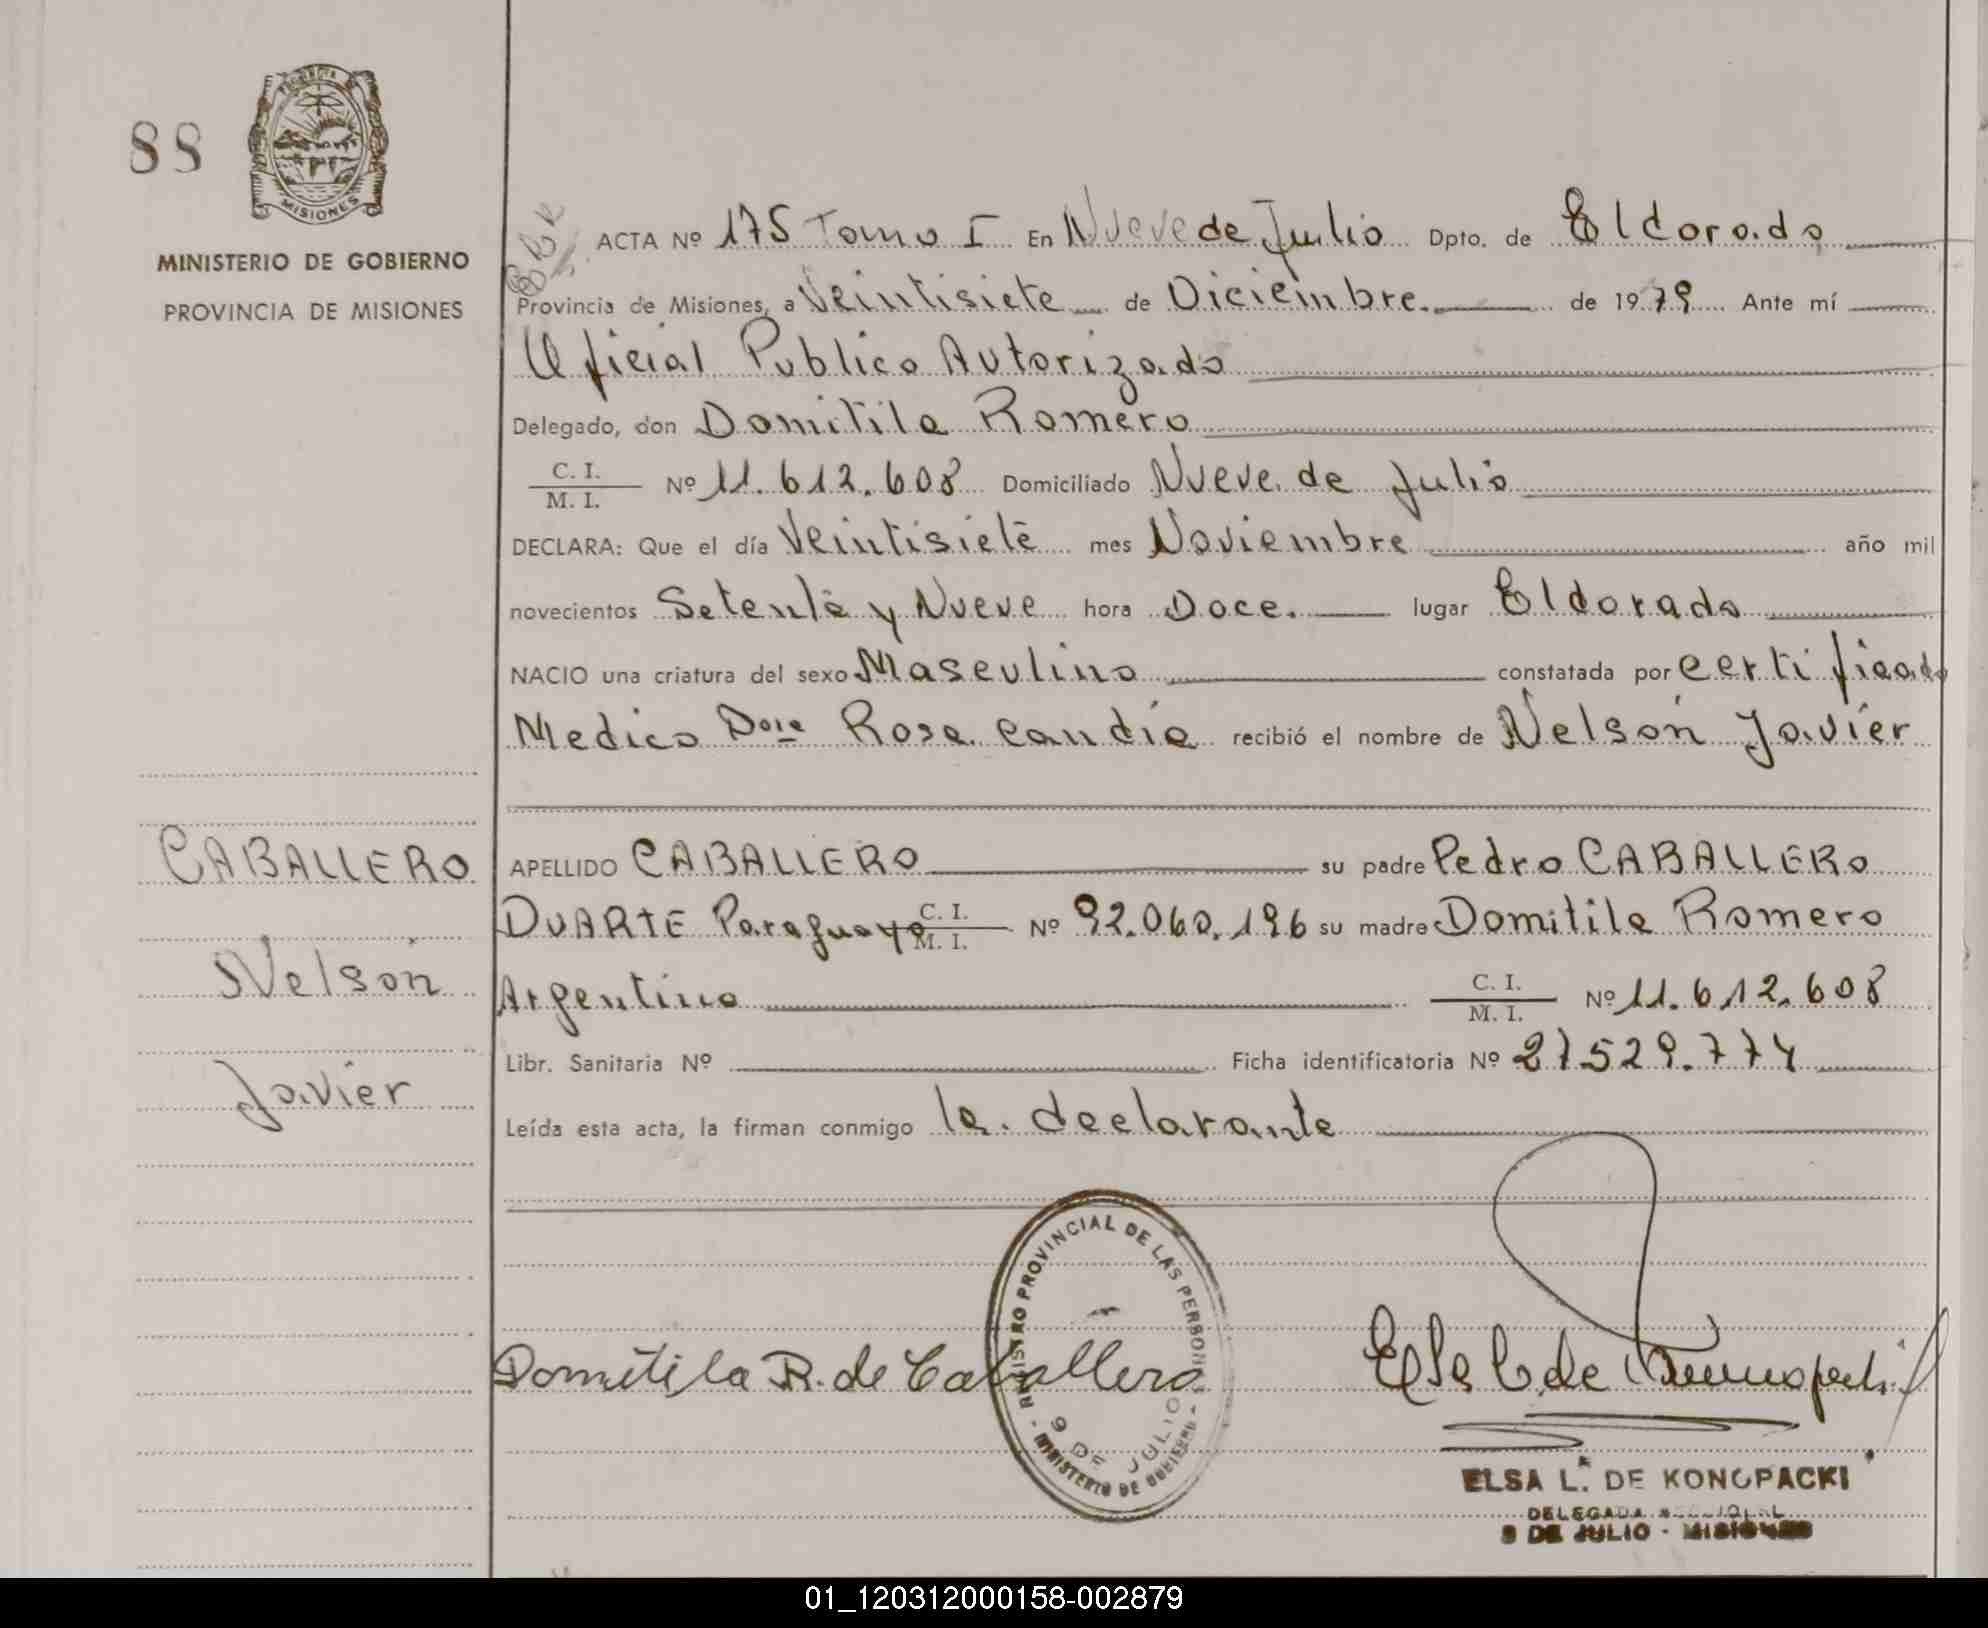 88
PROVINCIA
MISIONES
MINISTERIO DE GOBIERNO
PROVINCIA DE MISIONES
ACTA Nº 175 Tomo I En Nueve de Julio Dpto. de Eldorado
Provincia de Misiones, a Veintisiete de Diciembre. de 1979 Ante mí
Oficial Publico Autorizado
Delegado, don Domitila Romero
C. I.
M. I. Nº 11.612.608 Domiciliado Nueve de Julio
DECLARA: Que el día Veintisiete mes Noviembre año mil
novecientos Setenta y Nueve hora Doce. lugar Eldorado
NACIO una criatura del sexo Masculino constatada por certificado
Medico Dora Rosa Candia recibió el nombre de Nelson Javier
CABALLERO
Nelson
Javier
APELLIDO CABALLERO su padre Pedro CABALLERO
DUARTE Paraguayo C. I.
M. I. Nº 92.060.196 su madre Domitila Romero
Argentina C. I.
M. I. Nº 11.612.608
Libr. Sanitaria Nº Ficha identificatoria Nº 27.529.774
Leída esta acta, la firman conmigo la declarante
REGISTRO PROVINCIAL DE LAS PERSONAS
9 DE JULIO
MINISTERIO DE GOBIERNO
Domitila R. de Caballero
Elsa L. de Konopacki
ELSA L. DE KONOPACKI
DELEGADA
9 DE JULIO - MISIONES
01_120312000158-002879